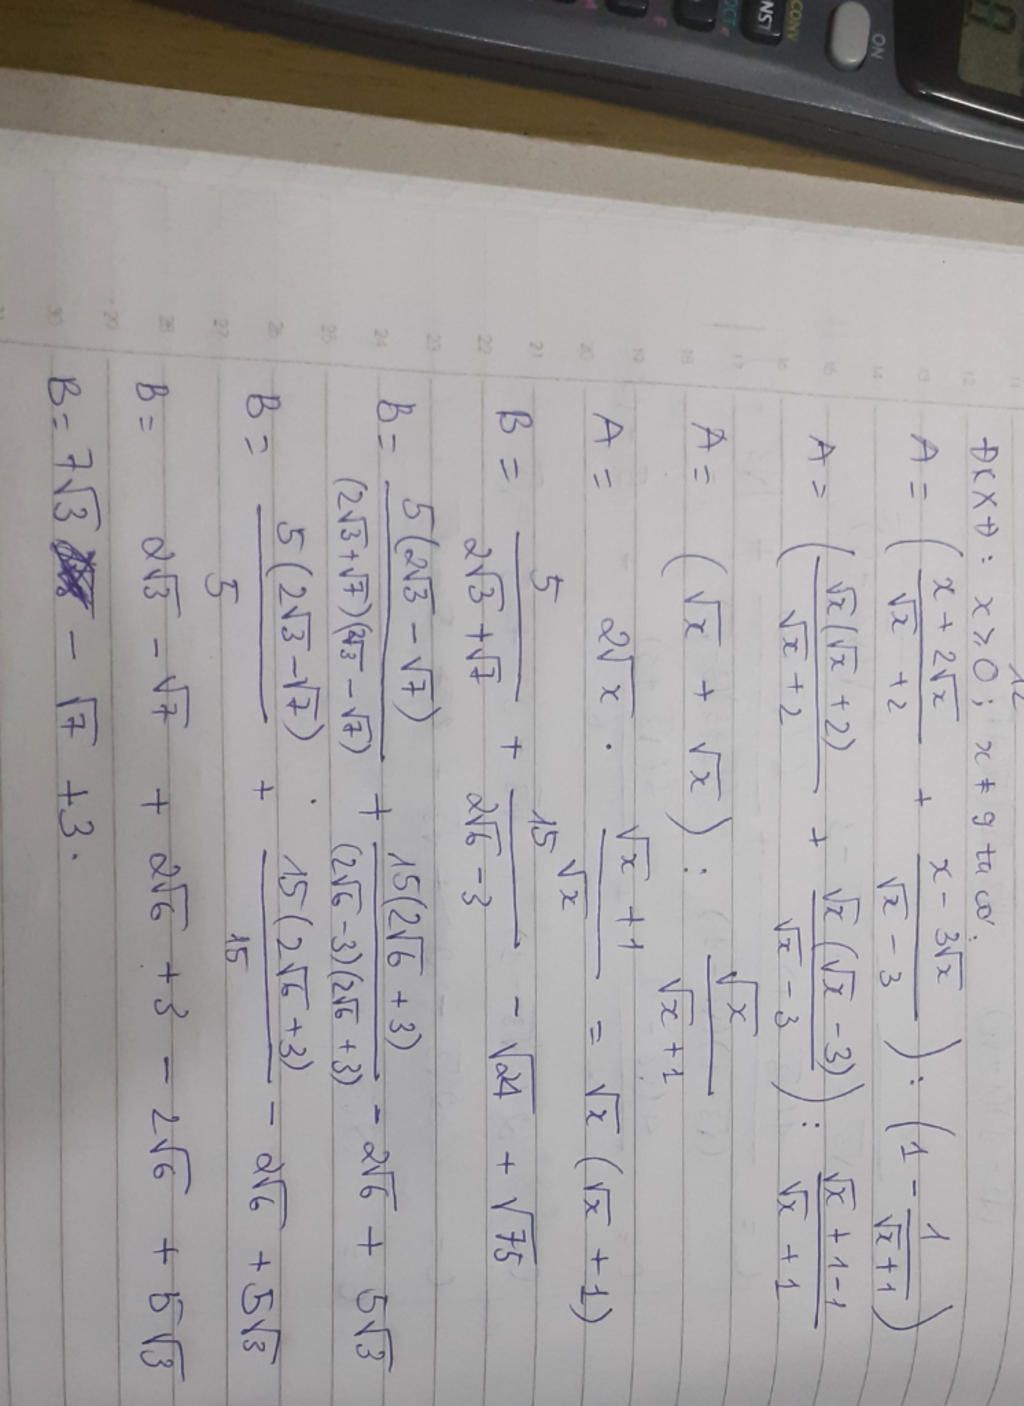 ON
CONV
12
ĐKXĐ: x ≥ 0; x ≠ 9 ta có:
A = ( (x + 2√x)/(√x + 2) + (x - 3√x)/(√x - 3) ) : ( 1 - 1/(√x + 1) )
A = ( √x(√x + 2)/(√x + 2) + √x(√x - 3)/(√x - 3) ) : (√x + 1 - 1)/(√x + 1)
A = (√x + √x) : √x/(√x + 1)
A = 2√x . (√x + 1)/√x = √x(√x + 1)
B = 5/(2√3 + √7) + 15/(2√6 - 3) - √24 + √75
B = 5(2√3 - √7)/((2√3 + √7)(2√3 - √7)) + 15(2√6 + 3)/((2√6 - 3)(2√6 + 3)) - 2√6 + 5√3
B = 5(2√3 - √7)/5 + 15(2√6 + 3)/15 - 2√6 + 5√3
B = 2√3 - √7 + 2√6 + 3 - 2√6 + 5√3
B = 7√3 - √7 + 3.